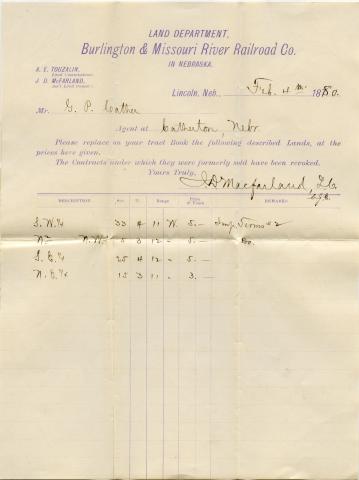 LAND DEPARTMENT,
Burlington & Missouri River Railroad Co.
IN NEBRASKA.
A. E. TOUZALIN,
Land Commissioner.
J. D. McFARLAND,
Ass't Land Comm'r.
Lincoln, Neb., Feb. 4th 1880.
Mr. G. P. Cather
Agent at Catherton, Nebr
Please replace on your tract Book the following described Lands, at the
prices here given.
The Contracts under which they were formerly sold have been revoked.
Yours Truly,
J D Macfarland,
DESCRIPTION Sec. T. Range Price REMARKS.
S.W.¼ 33 4 11 W. 5.— Imp. Terms # 2
N½ N.W.¼ 5 3 12 " 5.— Do.
S.E.¼ 25 4 12 " 5.—
N.E.¼ 15 3 11 " 3.—